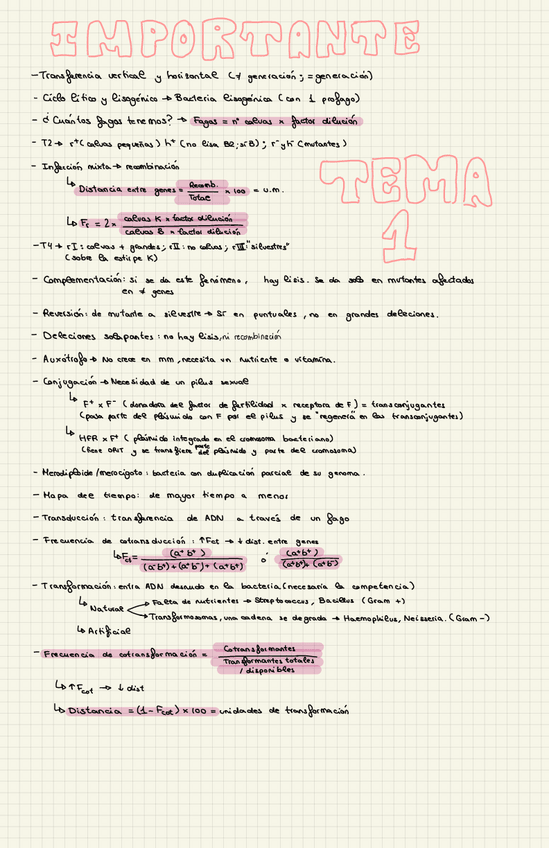 IMPORTANTE
- Transferencia vertical y horizontal (≠ generación ; = generación)
- Ciclo lítico y lisogénico → Bacteria lisogénica (con 1 profago)
- ¿Cuántos fagos tenemos? → Fagos = nº calvas x factor dilución
- T2 → r⁺(calvas pequeñas) h⁺(no lisa B2; sí B) ; r⁻y h⁻(mutantes)
- Infección mixta → recombinación
TEMA
1
↳ Distancia entre genes = Recomb. / Total x 100 = u.m.
↳ Fr = 2x calvas K x factor dilución / calvas B x factor dilución
- T4 → rI: calvas + grandes; rII: no calvas; rIII "silvestres"
(sobre la estirpe K)
- Complementación: si se da este fenómeno, hay lisis. Se da solo en mutantes afectados
en ≠ genes
- Reversión: de mutante a silvestre → Sí en puntuales, no en grandes deleciones.
- Deleciones solapantes: no hay lisis, ni recombinación
- Auxótrofo → No crece en mm, necesita un nutriente o vitamina.
- Conjugación → Necesidad de un pilus sexual
↳ F⁺ x F⁻ (donadora del factor de fertilidad x receptora de F) = transconjugantes
(pasa parte del plásmido con F por el pilus y se "regenera" en los transconjugantes)
↳ HFR x F⁺ (plásmido integrado en el cromosoma bacteriano)
(tiene ORIT y se transfiere parte del plásmido y parte del cromosoma)
- Merodiploide/merocigoto: bacteria con duplicación parcial de su genoma.
- Mapa del tiempo: de mayor tiempo a menor
- Transducción: transferencia de ADN a través de un fago
- Frecuencia de cotransducción: ↑Fcot → ↓ dist. entre genes
↳ Fct = (a⁺b⁺) / (a⁻b⁺)+(a⁺b⁻)+(a⁺b⁺) ó (a⁺b⁺) / (a⁺b⁺)+(a⁺b⁻)
- Transformación: entra ADN desnudo en la bacteria (necesaria la competencia)
↳ Natural → Falta de nutrientes → Streptococcus, Bacillus (Gram +)
→ Transformosomas, una cadena se degrada → Haemophilus, Neisseria. (Gram -)
↳ Artificial
- Frecuencia de cotransformación = Cotransformantes / Transformantes totales
/ disponibles
↳ ↑Fcot → ↓ dist
↳ Distancia = (1 - Fcot) x 100 = unidades de transformación